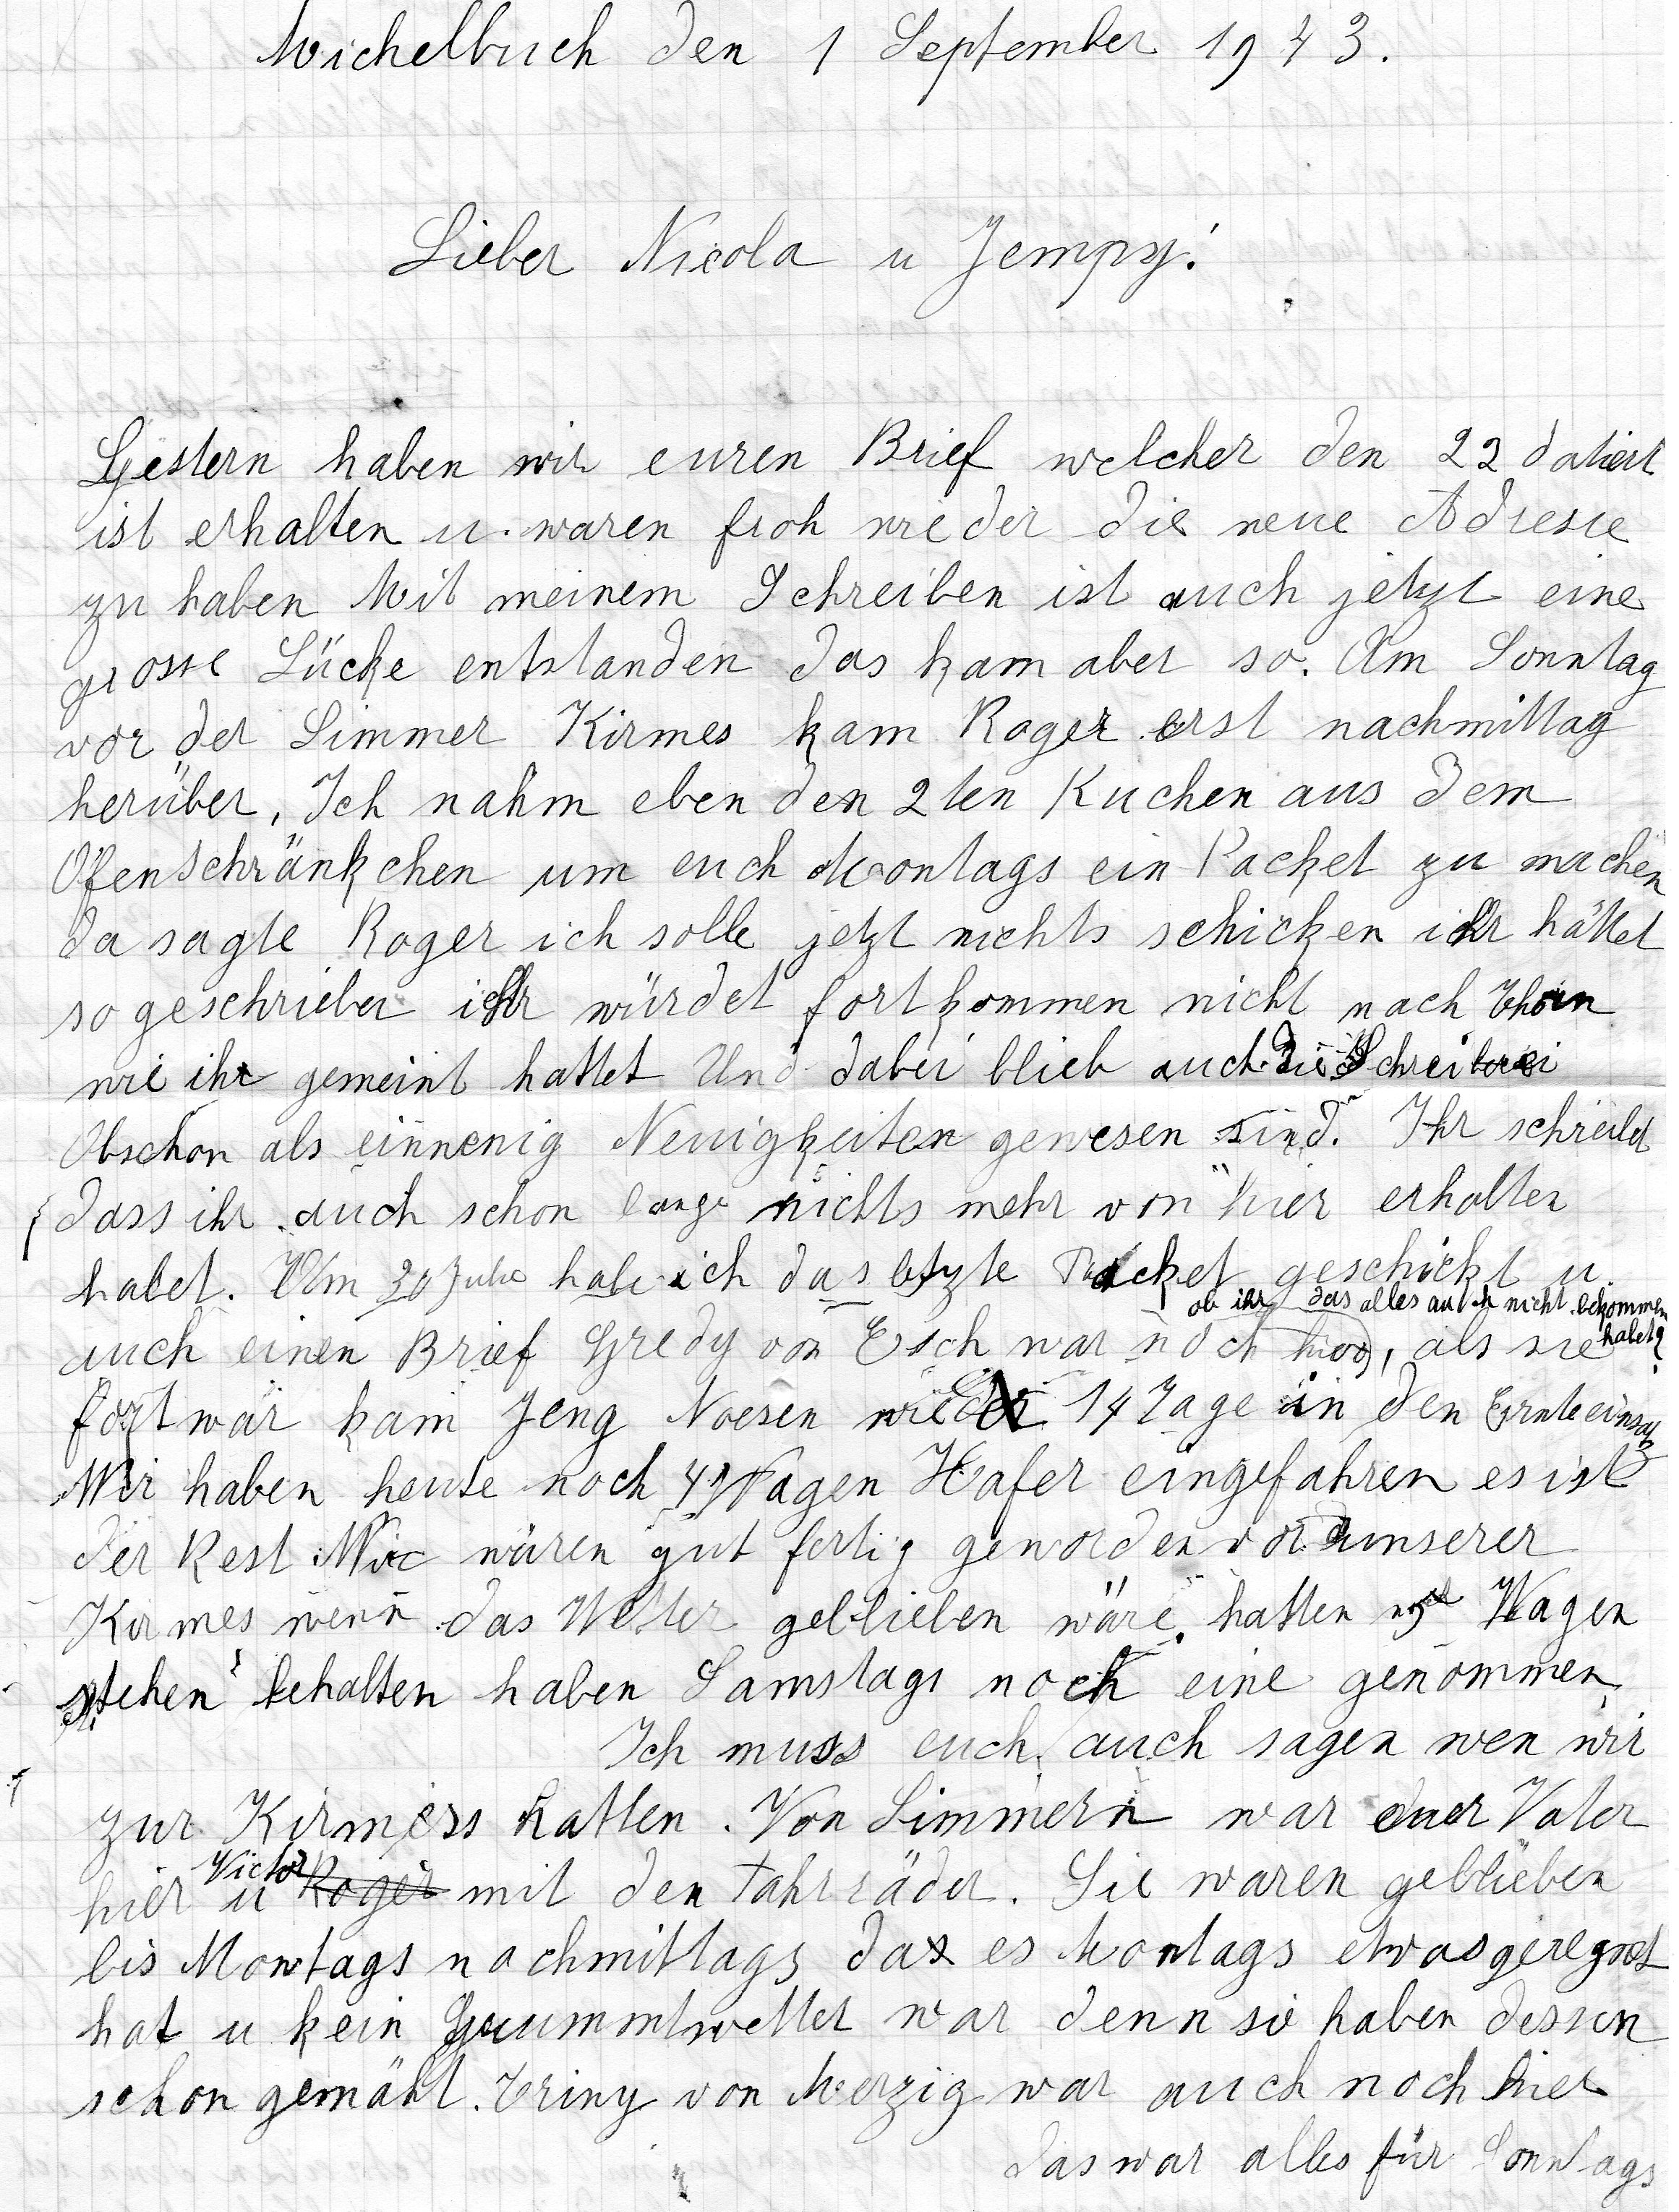 Michelbuch den 1 September 1943.
Lieber Nicola u Jempy!
Gestern haben wir euren Brief welcher den 22 datiert
ist erhalten u. waren froh wieder die neue Adresse
zu haben Mit meinem Schreiben ist auch jetzt eine
grosse Lücke entstanden das kam aber so. Am Sonntag
vor der Simmer Kirmes kam Roger erst nachmittag
herüber, Ich nahm eben den 2ten Kuchen aus dem
Ofenschränkchen um euch Montags ein Packet zu machen
da sagte Roger ich solle jetzt nichts schicken ihr hättet
so geschrieben ihr würdet fortkommen nicht nach Thorn
wie ihr gemeint hattet Und dabei blieb auch die Schreiberei
Obschon als einwenig Neuigkeiten gewesen sind. Ihr schreibt
dass ihr auch schon lange nichts mehr von hier erhalten
habet. Am 20 Juli habe ich das letzte Packet geschickt u.
ob ihr das alles auch nicht bekommen habet?
auch einen Brief Gredy von Esch war noch hier, als sie
fort war kam Jeng Noesen wieder 14 Tage in den Ernteeinsatz
Wir haben heute noch 4 Wagen Hafer eingefahren es ist
der Rest Wir wären gut fertig geworden vor unserer
Kirmes wenn das Wetter geblieben wäre, hatten Wagen
stehen behalten haben Samstags noch eine genommen
Ich muss euch auch sagen wen wir
zur Kirmess hatten. Von Simmern war euer Vater
hier u Victor Roger mit den Fahrräder. Sie waren geblieben
bis Montags nachmittags das es Montags etwas geregnet
hat u kein Grummtwetter war denn sie haben dessen
schon gemäht. Triny von Merzig war auch noch hier
das war alles für Sonntags